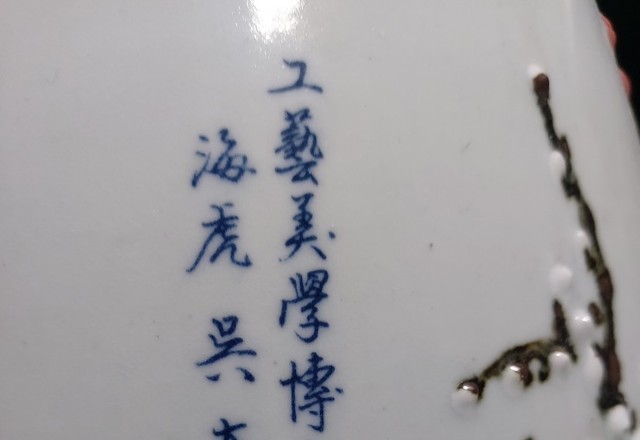 工藝美學博
海虎吳